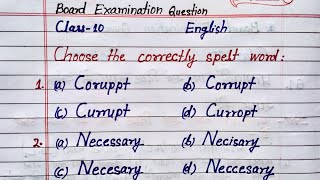 Board Examination Question
Class-10 English
Choose the correctly spelt word:
1. (a) Coruppt (b) Corrupt
(c) Currupt (d) Curropt
2. (a) Necessary (b) Necisary
(c) Necesary (d) Neccesary